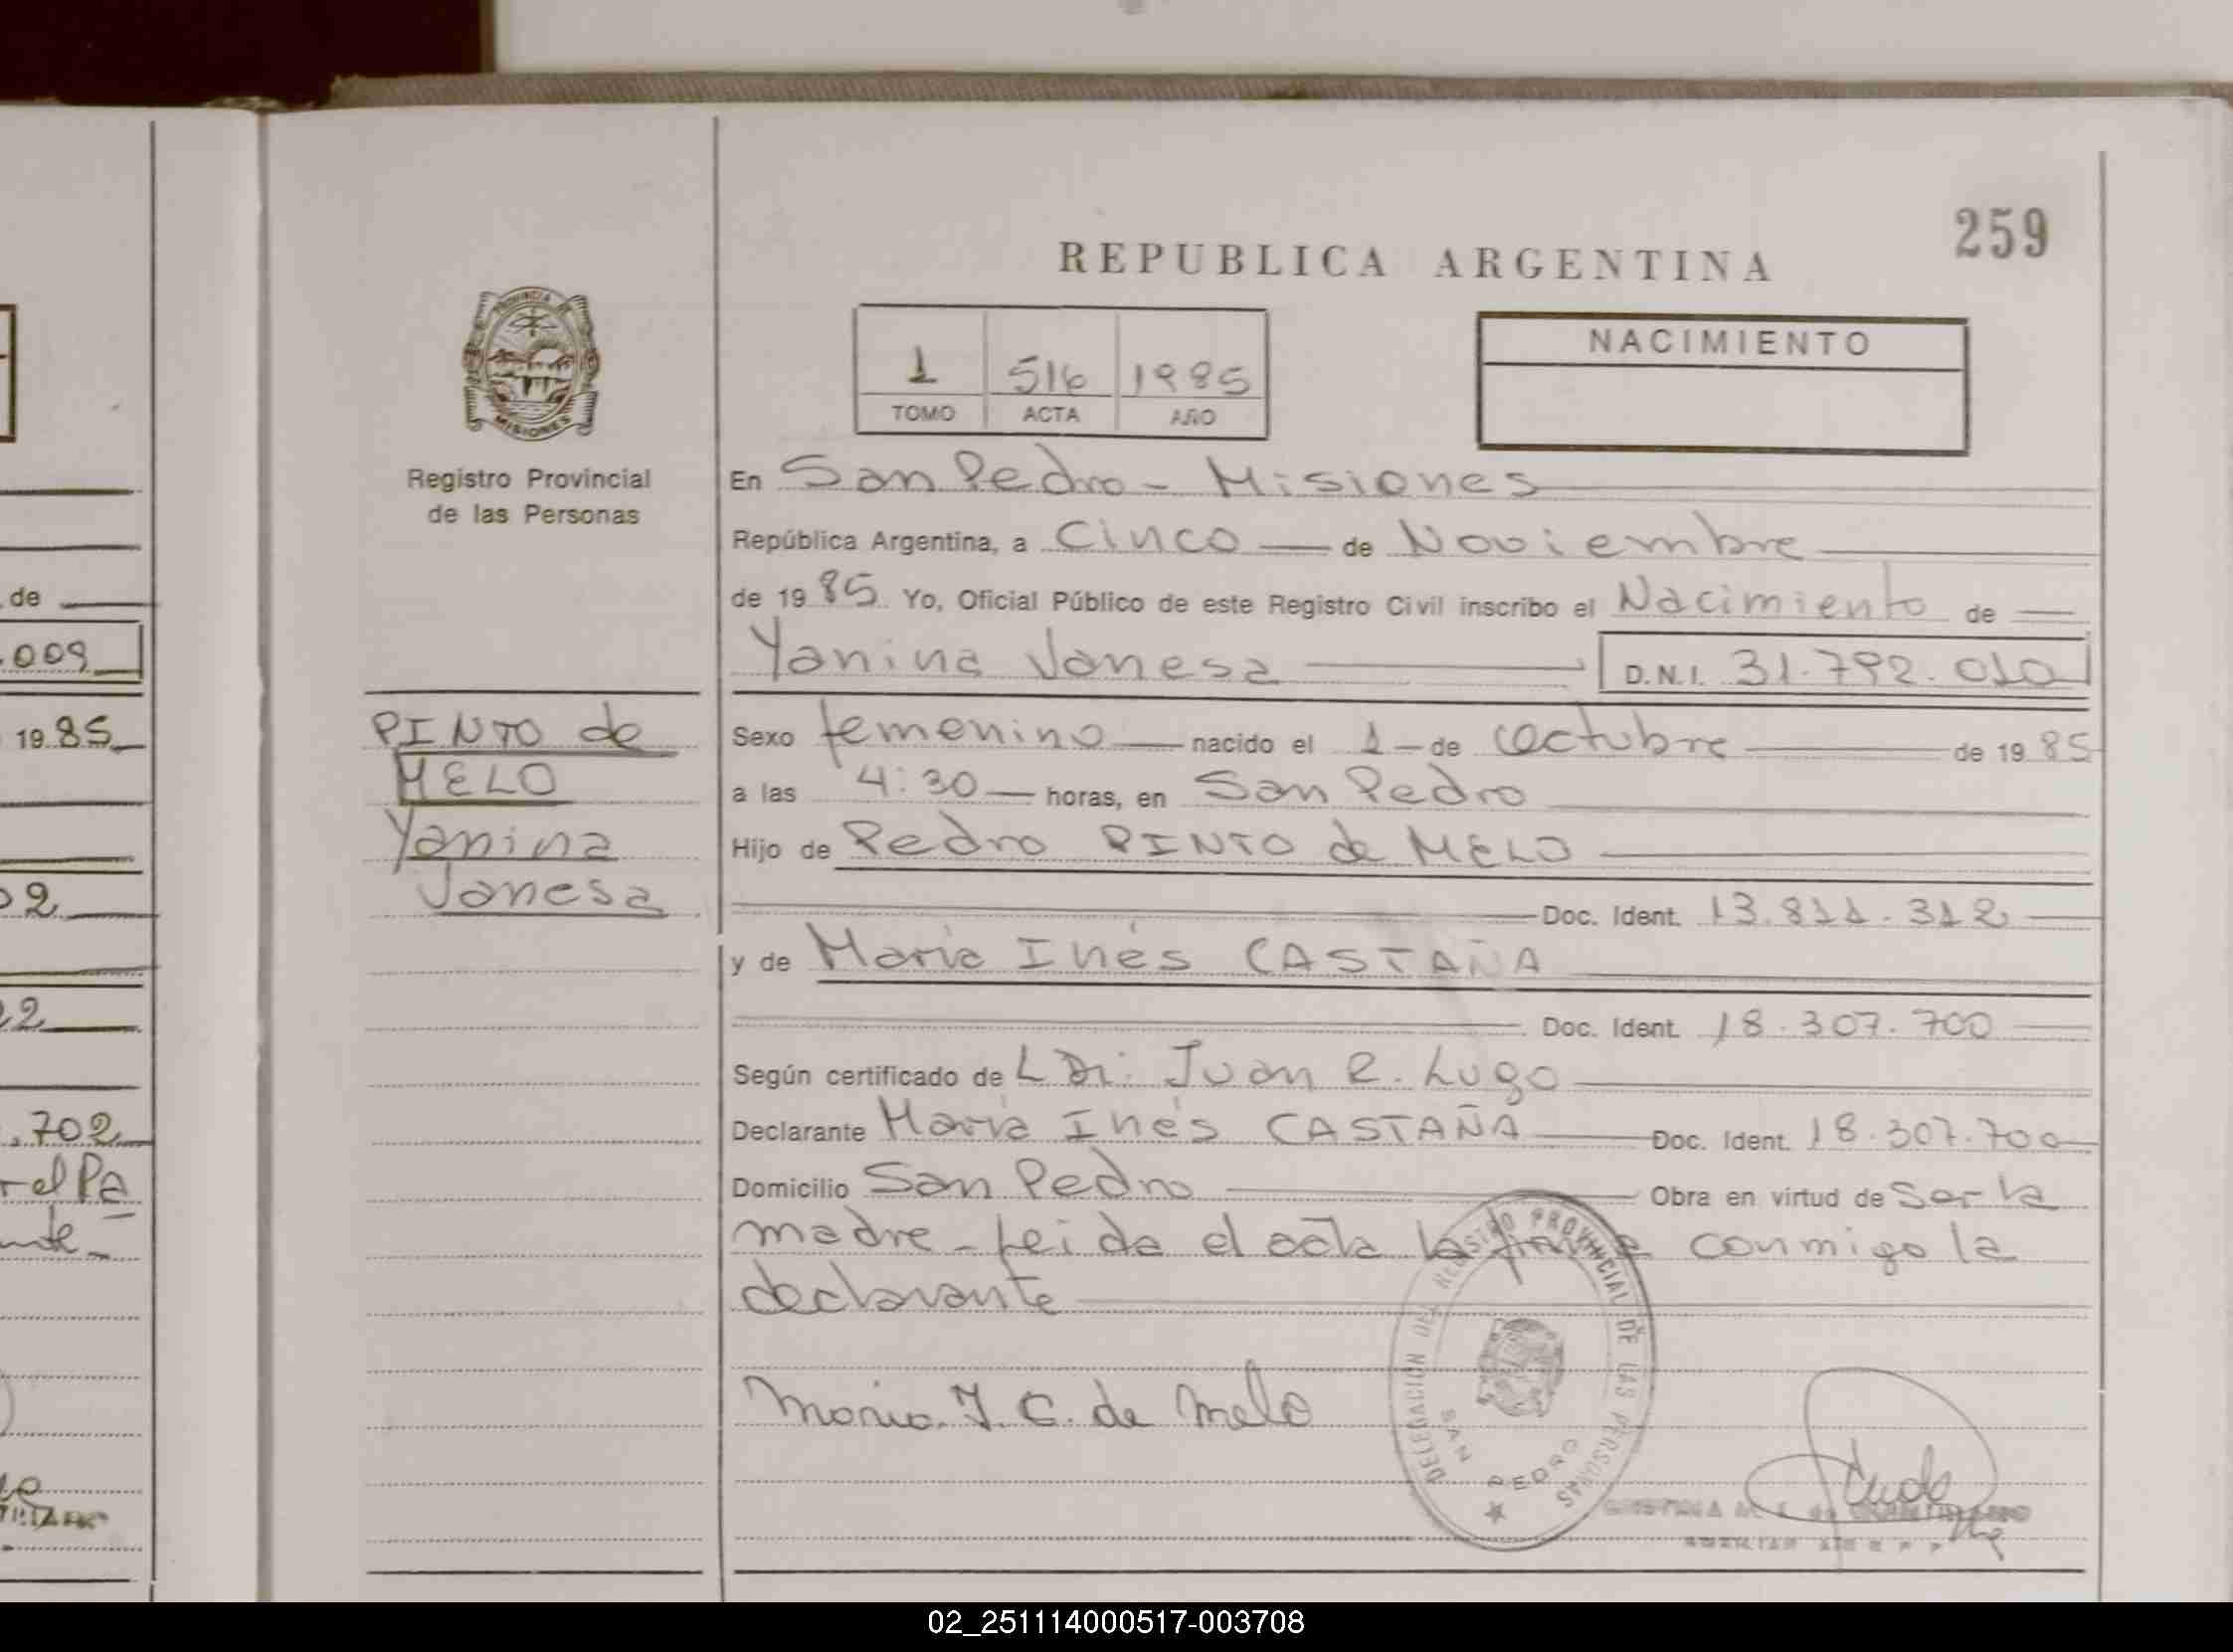 259
REPUBLICA ARGENTINA
PROVINCIA DE
MISIONES
Registro Provincial
de las Personas
1 516 1985
TOMO ACTA AÑO
NACIMIENTO
En San Pedro - Misiones
República Argentina, a Cinco — de Noviembre
de 1985 Yo, Oficial Público de este Registro Civil inscribo el Nacimiento de
Yanina Vanesa D.N.I. 31.792.010
PINTO de
MELO
Yanina
Vanesa
Sexo femenino — nacido el 1 — de octubre — de 1985
a las 4:30 — horas, en San Pedro
Hijo de Pedro PINTO de MELO
Doc. Ident. 13.811.312
y de María Inés CASTAÑA
Doc. Ident. 18.307.700
Según certificado de Juan R. Lugo
Declarante María Inés CASTAÑA — Doc. Ident. 18.307.700
Domicilio San Pedro — Obra en virtud de Ser la
madre - Leída el acta la firma conmigo la
declarante
Maria I. C. de Melo
DELEGACION DEL REGISTRO PROVINCIAL DE LAS PERSONAS
SAN PEDRO
de
.009
1985
02
22
.702
r el Pa
02_251114000517-003708